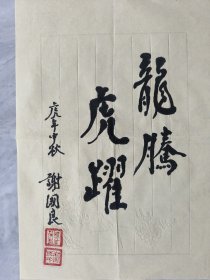 龍騰
虎躍
虎年中秋
謝國良